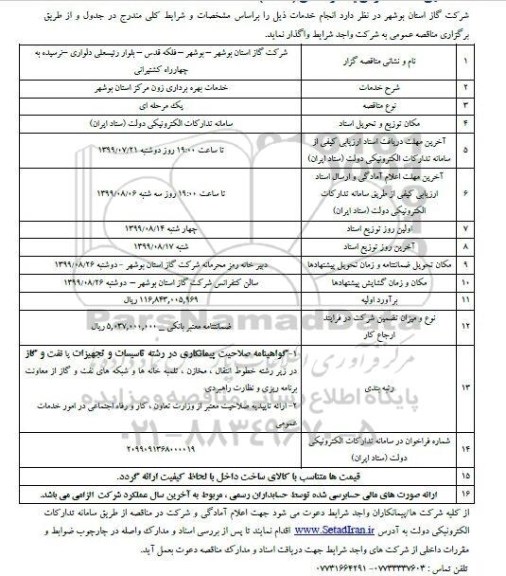 شرکت گاز استان بوشهر در نظر دارد انجام خدمات ذیل را براساس مشخصات و شرایط کلی مندرج در جدول و از طریق
برگزاری مناقصه عمومی به شرکت واجد شرایط واگذار نماید.
۱ نام و نشانی مناقصه گزار شرکت گاز استان بوشهر – بوشهر – فلکه قدس – بلوار رئیسعلی دلواری –نرسیده به
چهارراه کشتیرانی
۲ شرح خدمات خدمات بهره برداری زون مرکز استان بوشهر
۳ نوع مناقصه یک مرحله ای
۴ مکان توزیع و تحویل اسناد سامانه تدارکات الکترونیکی دولت (ستاد ایران)
۵ آخرین مهلت دریافت اسناد ارزیابی کیفی از
سامانه تدارکات الکترونیکی دولت (ستاد ایران) تا ساعت ۱۹:۰۰ روز دوشنبه ۱۳۹۹/۰۷/۲۱
۶ آخرین مهلت اعلام آمادگی و ارسال اسناد
ارزیابی کیفی از طریق سامانه تدارکات
الکترونیکی دولت (ستاد ایران) تا ساعت ۱۹:۰۰ روز سه شنبه ۱۳۹۹/۰۸/۰۶
۷ اولین روز توزیع اسناد چهار شنبه ۱۳۹۹/۰۸/۱۴
۸ آخرین روز توزیع اسناد شنبه ۱۳۹۹/۰۸/۱۷
۹ مکان تحویل ضمانتنامه و زمان تحویل پیشنهادها دبیر خانه رمز محرمانه شرکت گاز استان بوشهر - دوشنبه ۱۳۹۹/۰۸/۲۶
۱۰ مکان و زمان گشایش پیشنهادها سالن کنفرانس شرکت گاز استان بوشهر – دوشنبه ۱۳۹۹/۰۸/۲۶
۱۱ برآورد اولیه ۱۱۶,۸۴۳,۰۰۵,۹۶۹ ریال
۱۲ نوع و میزان تضمین شرکت در فرایند
ارجاع کار ضمانتنامه معتبر بانکی _ ۵,۰۳۷,۰۰۱,۰۰۰ ریال
۱۳ رتبه بندی ۱-گواهینامه صلاحیت پیمانکاری در رشته تاسیسات و تجهیزات یا نفت و گاز
در زیر رشته خطوط انتقال ، مخازن ، تلمبه خانه ها و شبکه های نفت و گاز از معاونت
برنامه ریزی و نظارت راهبردی
۲- ارائه تاییدیه صلاحیت معتبر از وزارت تعاون ، کار و رفاه اجتماعی در امور خدمات
عمومی
۱۴ شماره فراخوان در سامانه تدارکات الکترونیکی
دولت (ستاد ایران) ۲۰۹۹۰۹۱۳۶۸۰۰۰۰۱۹
۱۵ قیمت ها متناسب با کالای ساخت داخل با لحاظ کیفیت ارائه گردد.
۱۶ ارائه صورت های مالی حسابرسی شده توسط حسابداران رسمی ، مربوط به آخرین سال عملکرد شرکت الزامی می باشد.
از کلیه شرکت ها/پیمانکاران واجد شرایط دعوت می شود جهت اعلام آمادگی و شرکت در مناقصه از طریق سامانه تدارکات
الکترونیکی دولت به آدرس www.SetadIran.ir اقدام نمایند تا پس از بررسی اسناد و مدارک واصله در چارچوب ضوابط و
مقررات داخلی از شرکت های واجد شرایط جهت دریافت اسناد و مدارک مناقصه دعوت بعمل آید.
تلفن تماس : ۰۷۷۳۳۳۳۷۶۰۳-۰۷۷۳۱۶۶۴۲۹۱
ParsNamadData
پایگاه اطلاع رسانی مناقصه و مزایده
۰۲۱-۸۸۳۴۹۶۷۰-۵